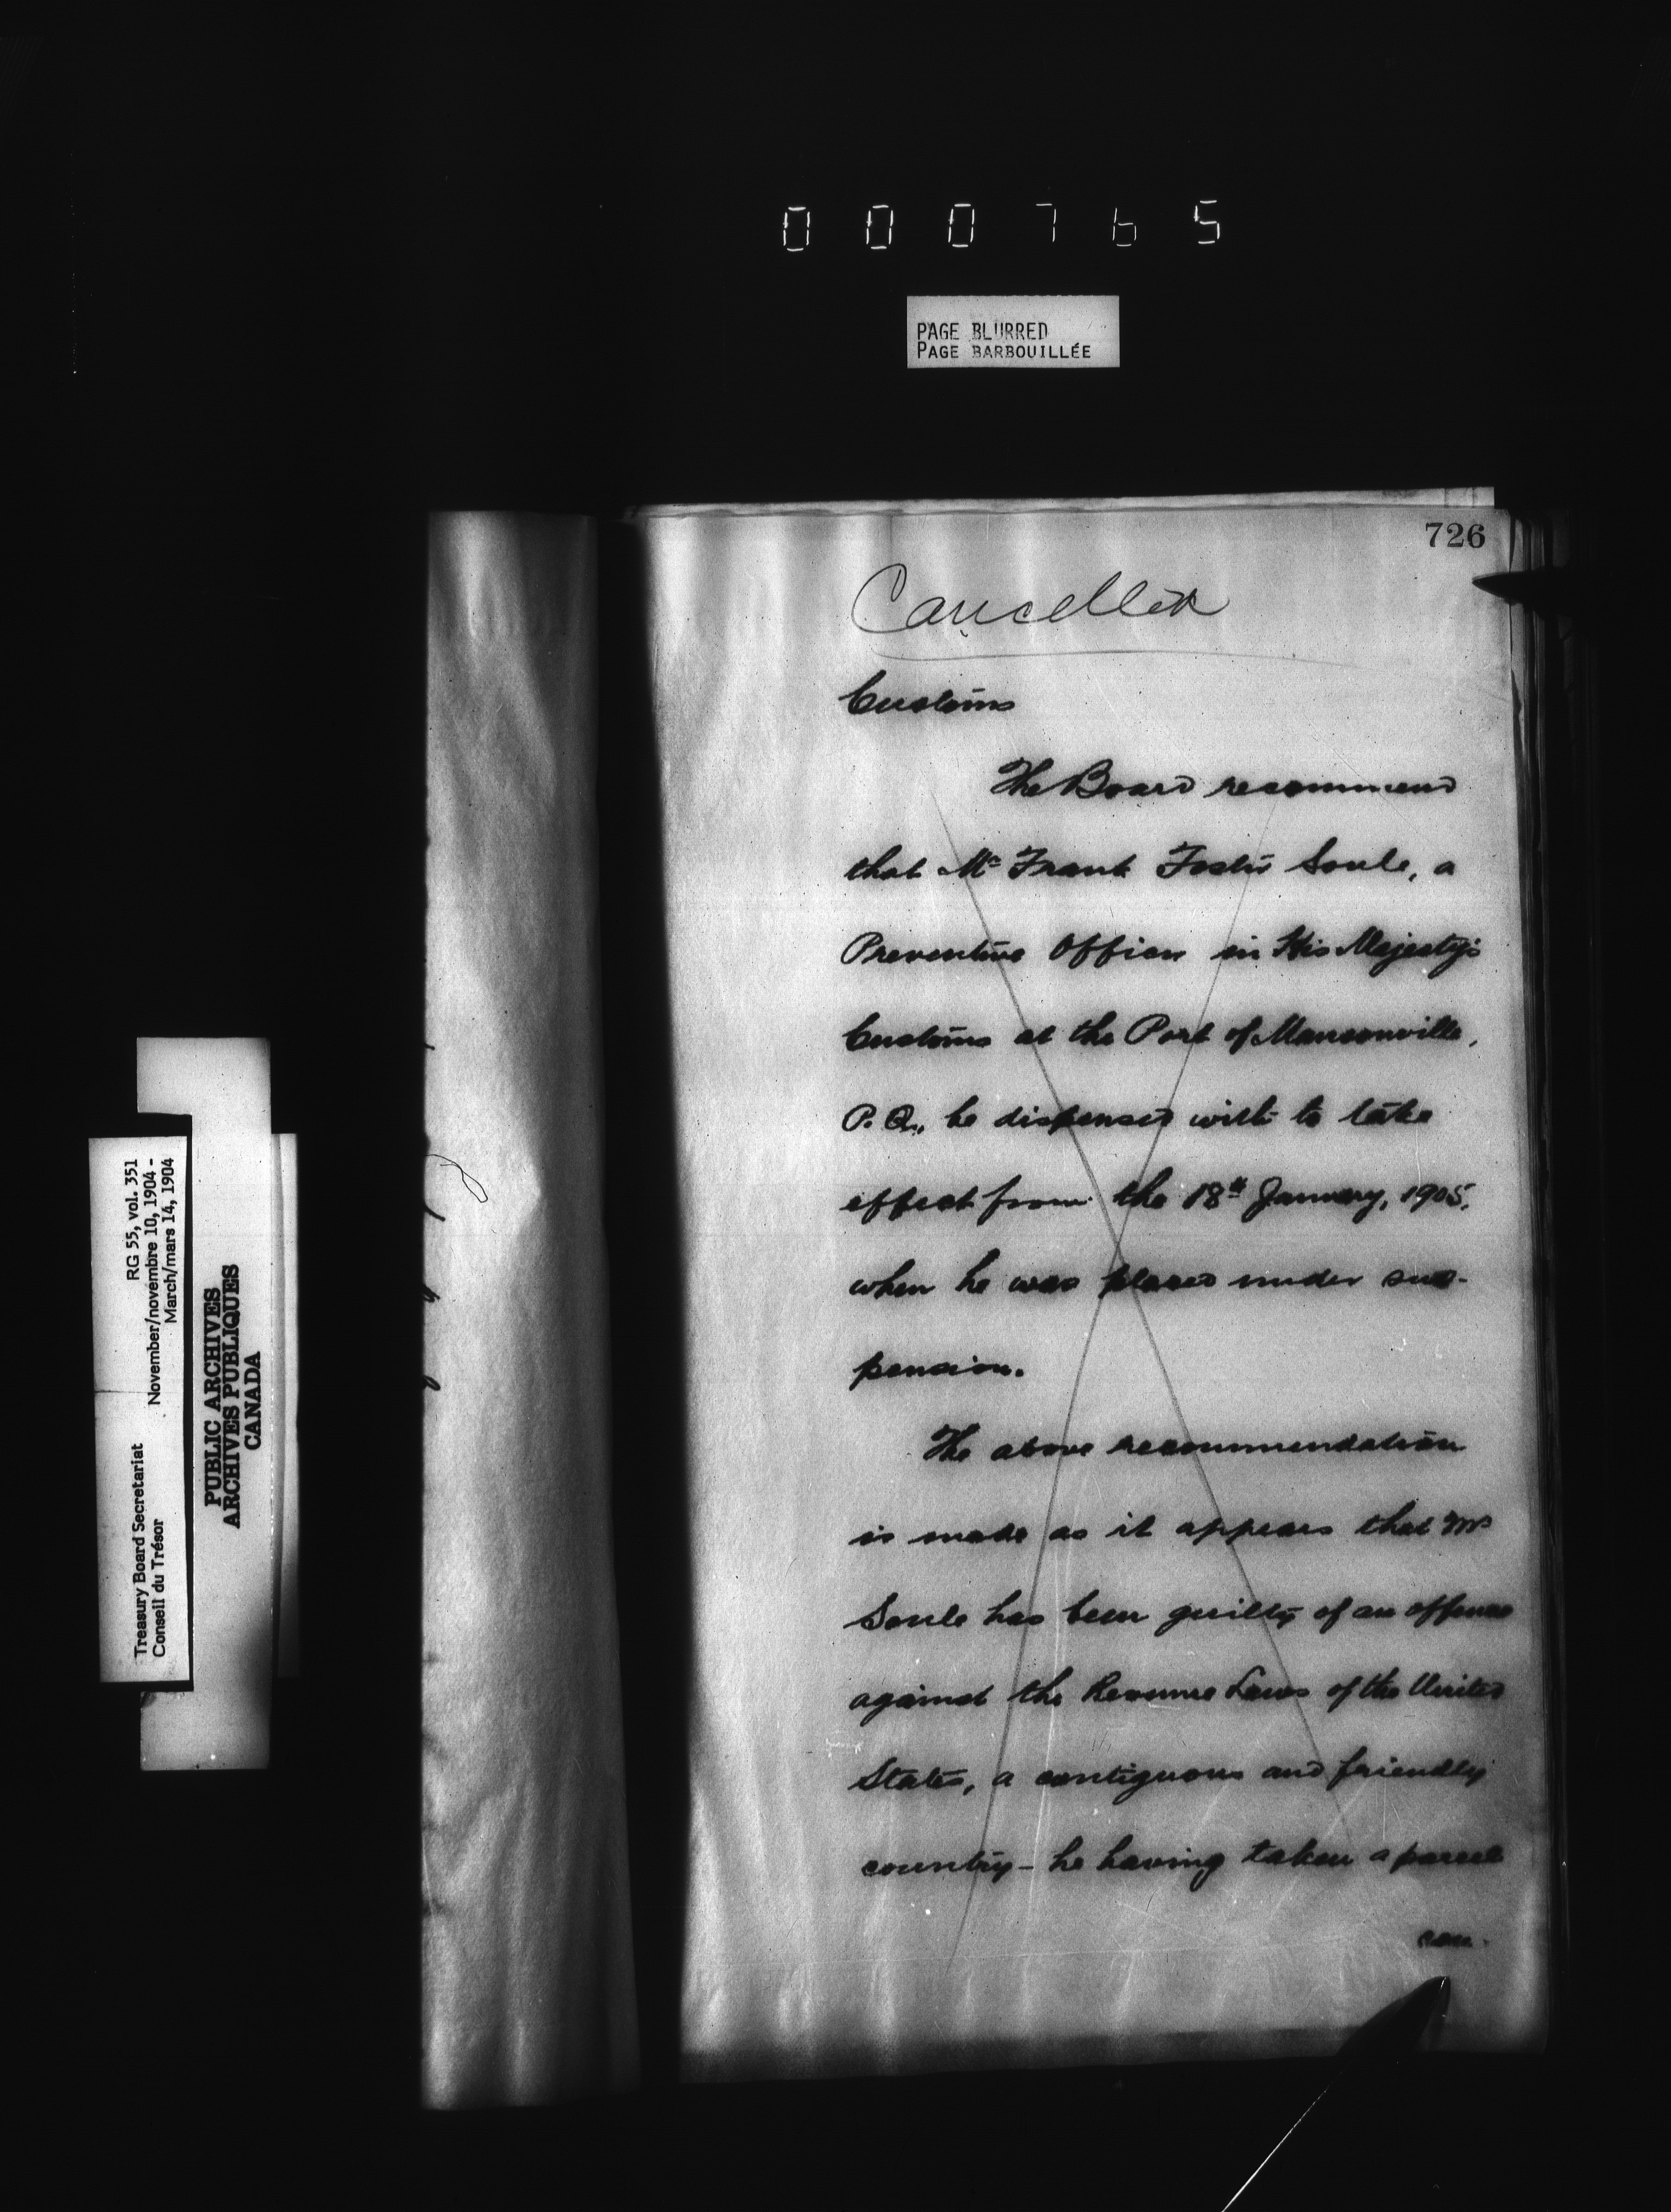 000765
PAGE BLURRED
PAGE BARBOUILLÉE
726
Cancelled
Customs
The Board recommend
that Mr Frank Foster Soule, a
Preventive Officer in His Majesty's
Customs at the Port of Mansonville,
P.Q., be dispensed with to take
effect from the 18th January, 1905,
when he was placed under sus-
pension.
The above recommendation
is made as it appears that Mr
Soule has been guilty of an offence
against the Revenue Laws of the United
States, a contiguous and friendly
country - he having taken a parcel
Treasury Board Secretariat RG 55, vol. 351
Conseil du Trésor November/novembre 10, 1904 -
March/mars 14, 1904
PUBLIC ARCHIVES
ARCHIVES PUBLIQUES
CANADA